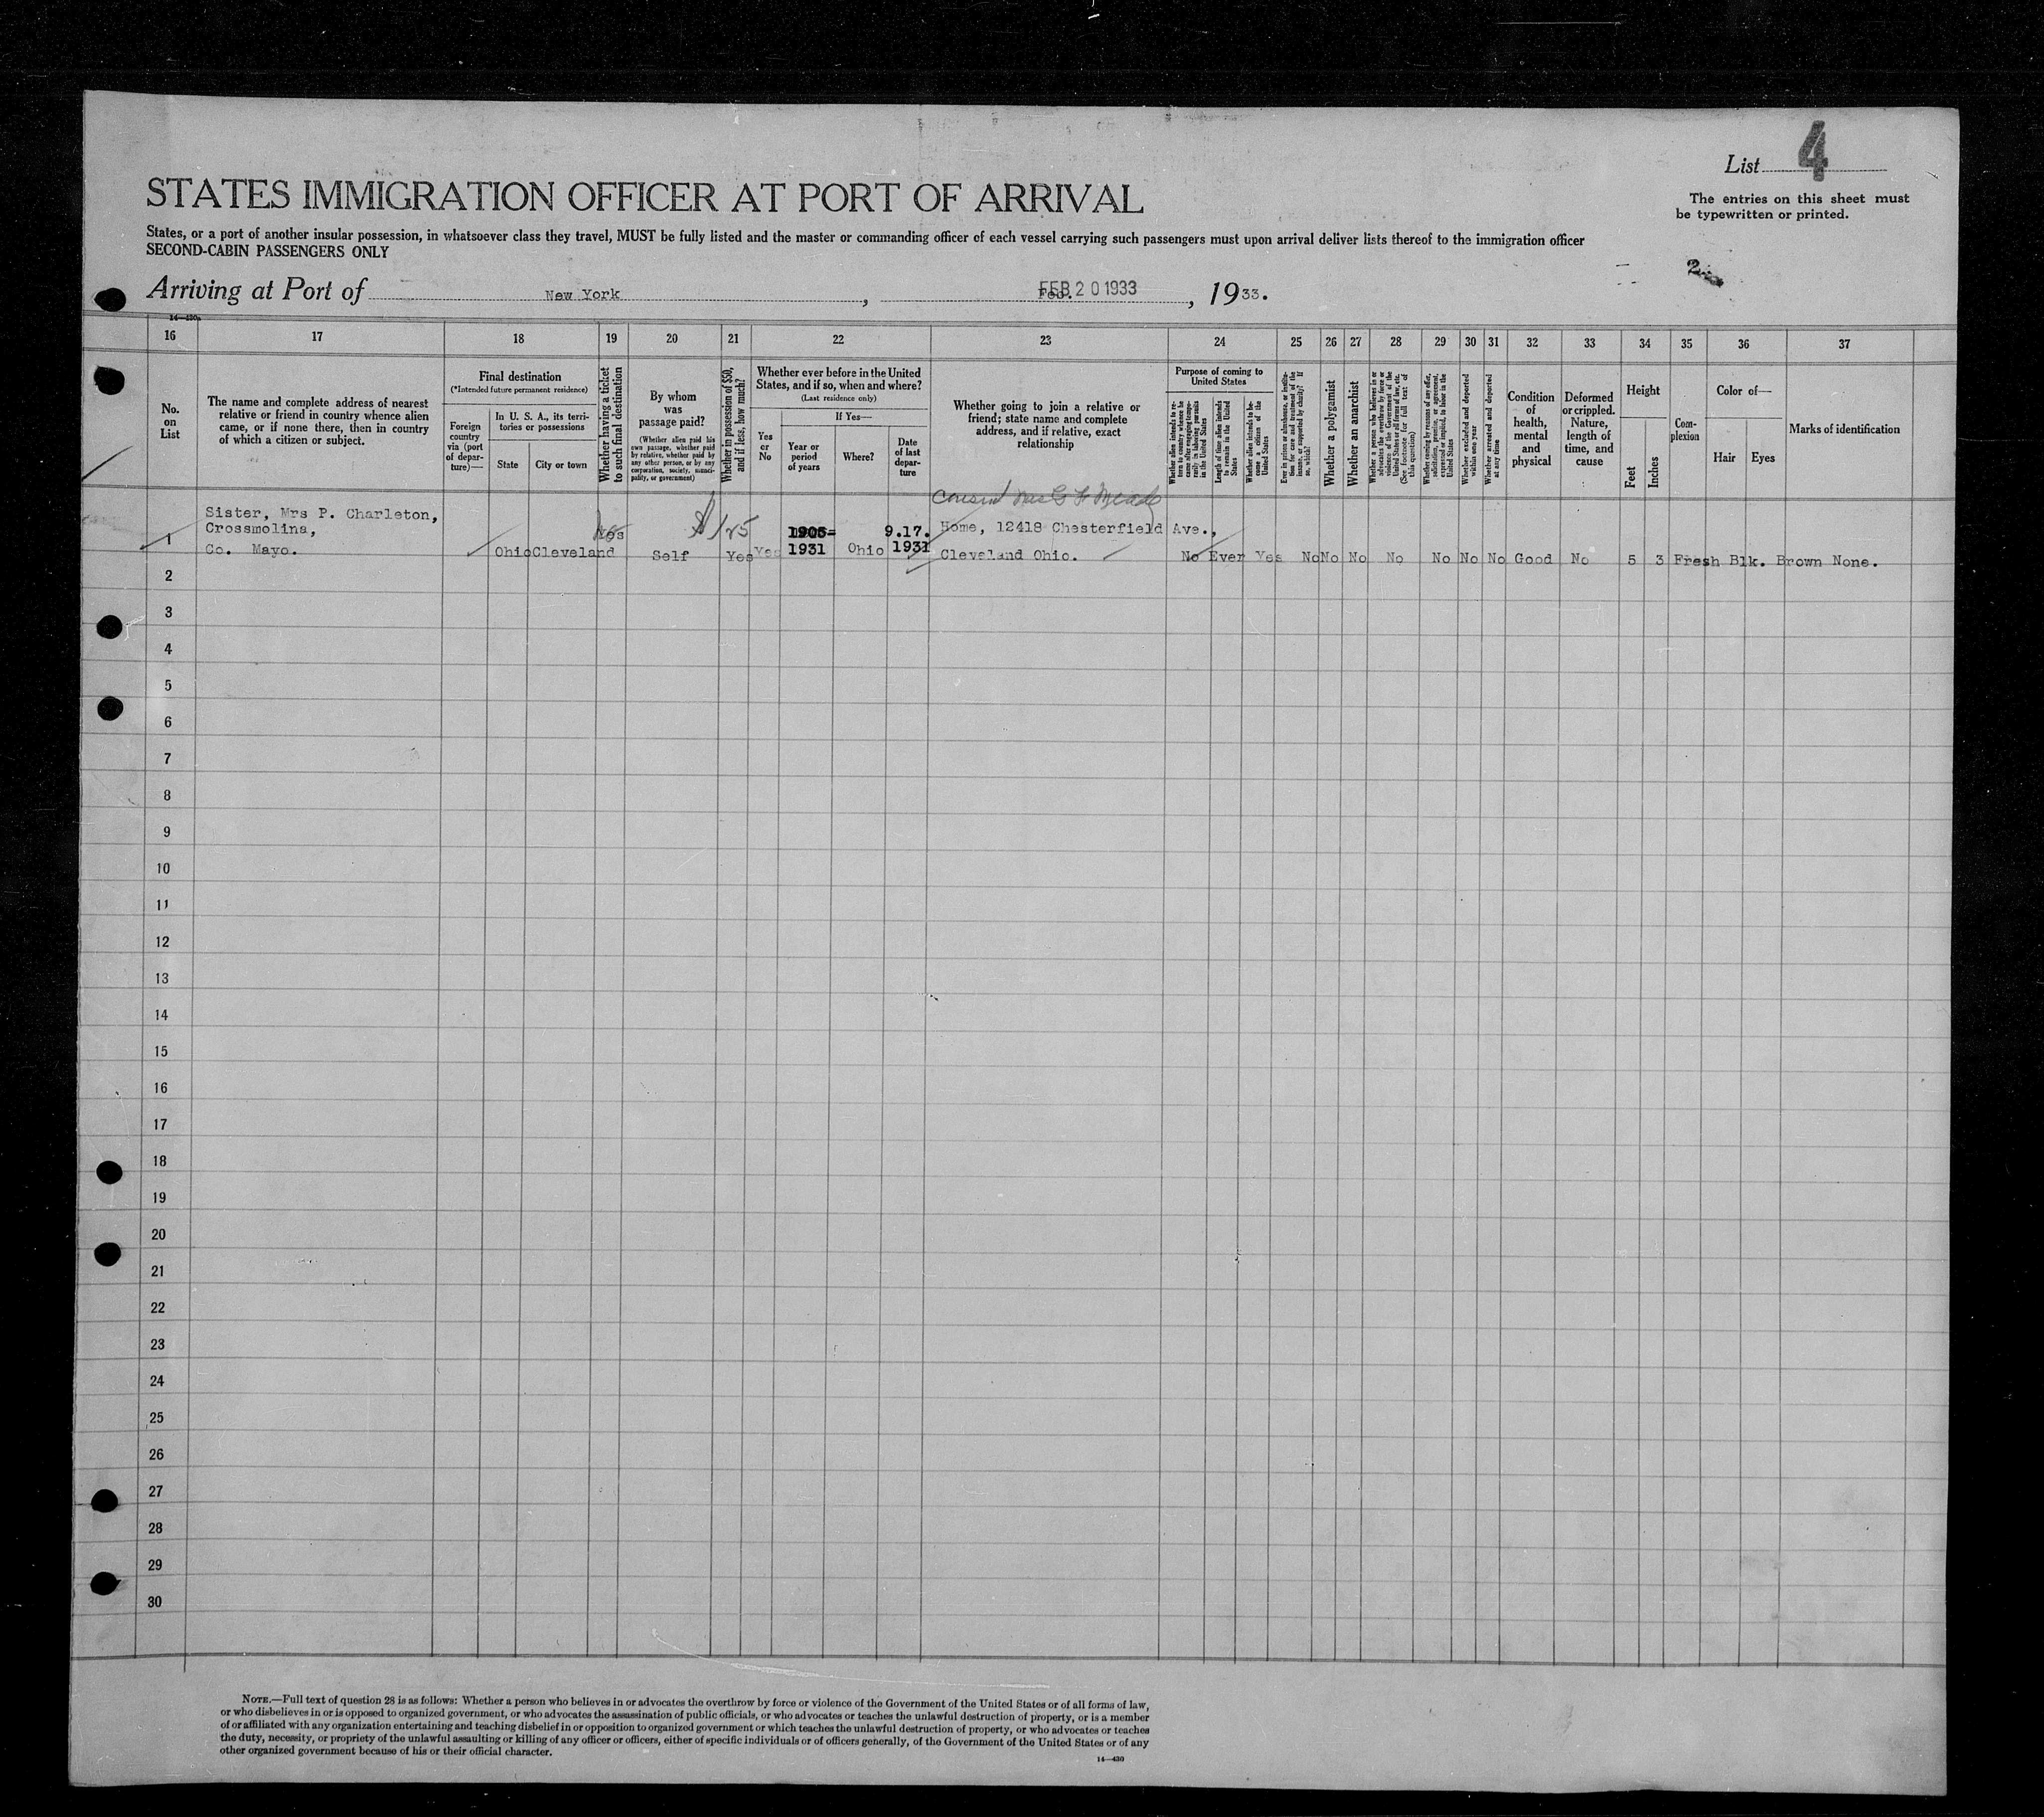 List 4
STATES IMMIGRATION OFFICER AT PORT OF ARRIVAL
The entries on this sheet must
be typewritten or printed.
States, or a port of another insular possession, in whatsoever class they travel, MUST be fully listed and the master or commanding officer of each vessel carrying such passengers must upon arrival deliver lists thereof to the immigration officer
SECOND-CABIN PASSENGERS ONLY
Arriving at Port of New York, FEB 20 1933, 1933.
14—430
16 17 18 19 20 21 22 23 24 25 26 27 28 29 30 31 32 33 34 35 36 37
No.
on
List
The name and complete address of nearest
relative or friend in country whence alien
came, or if none there, then in country
of which a citizen or subject.
Final destination
(*Intended future permanent residence)
Foreign
country
via (port
of depar-
ture)—
In U. S. A., its terri-
tories or possessions
State
City or town
Whether having a ticket
to such final destination
By whom
was
passage paid?
(Whether alien paid his
own passage, whether paid
by relative, whether paid by
any other person, or by any
corporation, society, munici-
pality, or government)
Whether in possession of $50,
and if less, how much?
Whether ever before in the United
States, and if so, when and where?
(Last residence only)
Yes
or
No
If Yes—
Year or
period
of years
Where?
Date
of last
depar-
ture
Whether going to join a relative or
friend; state name and complete
address, and if relative, exact
relationship
Purpose of coming to
United States
Whether alien intends to re-
turn to country whence he
came after engaging tempo-
rarily in laboring pursuits
in the United States
Length of time alien intends
to remain in the United
States
Whether alien intends to be-
come a citizen of the
United States
Ever in prison or almshouse, or institu-
tion for care and treatment of the
insane, or supported by charity? If
so, which?
Whether a polygamist
Whether an anarchist
Whether a person who believes in or
advocates the overthrow by force or
violence of the Government of the
United States or all forms of law, etc.
(See footnote for full text of
this question)
Whether coming by reason of any offer,
solicitation, promise, or agreement,
expressed or implied, to labor in the
United States
Whether excluded and deported
within one year
Whether arrested and deported
at any time
Condition
of
health,
mental
and
physical
Deformed
or crippled.
Nature,
length of
time, and
cause
Height
Feet
Inches
Com-
plexion
Color of—
Hair
Eyes
Marks of identification
cousin Mrs G F Meade
Sister, Mrs P. Charleton,
Crossmolina, Yes $125 1905= 9.17. Home, 12418 Chesterfield Ave.,
1 Co. Mayo. Ohio Cleveland Self Yes Yes 1931 Ohio 1931 Cleveland Ohio. No Ever Yes No No No No No No No Good No 5 3 Fresh Blk. Brown None.
2
3
4
5
6
7
8
9
10
11
12
13
14
15
16
17
18
19
20
21
22
23
24
25
26
27
28
29
30
NOTE.—Full text of question 28 is as follows: Whether a person who believes in or advocates the overthrow by force or violence of the Government of the United States or of all forms of law,
or who disbelieves in or is opposed to organized government, or who advocates the assassination of public officials, or who advocates or teaches the unlawful destruction of property, or is a member
of or affiliated with any organization entertaining and teaching disbelief in or opposition to organized government or which teaches the unlawful destruction of property, or who advocates or teaches
the duty, necessity, or propriety of the unlawful assaulting or killing of any officer or officers, either of specific individuals or of officers generally, of the Government of the United States or of any
other organized government because of his or their official character.
14—430